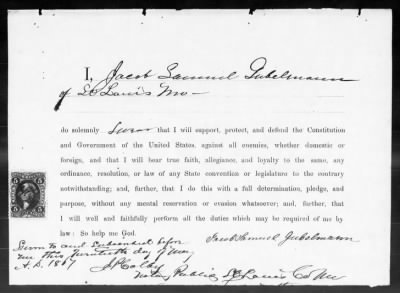 I, Jacob Samuel Gubelmann
of St Louis Mo —
do solemnly Swear that I will support, protect, and defend the Constitution
and Government of the United States, against all enemies, whether domestic or
foreign, and that I will bear true faith, allegiance, and loyalty to the same, any
ordinance, resolution, or law of any State convention or legislature to the contrary
notwithstanding; and, further, that I do this with a full determination, pledge, and
purpose, without any mental reservation or evasion whatsoever; and, further, that
I will well and faithfully perform all the duties which may be required of me by
law: So help me God.
Jacob Samuel Gubelmann
Sworn to and subscribed before
me this twentieth day of May
A.D. 1867
Notary Public St Louis Co Mo